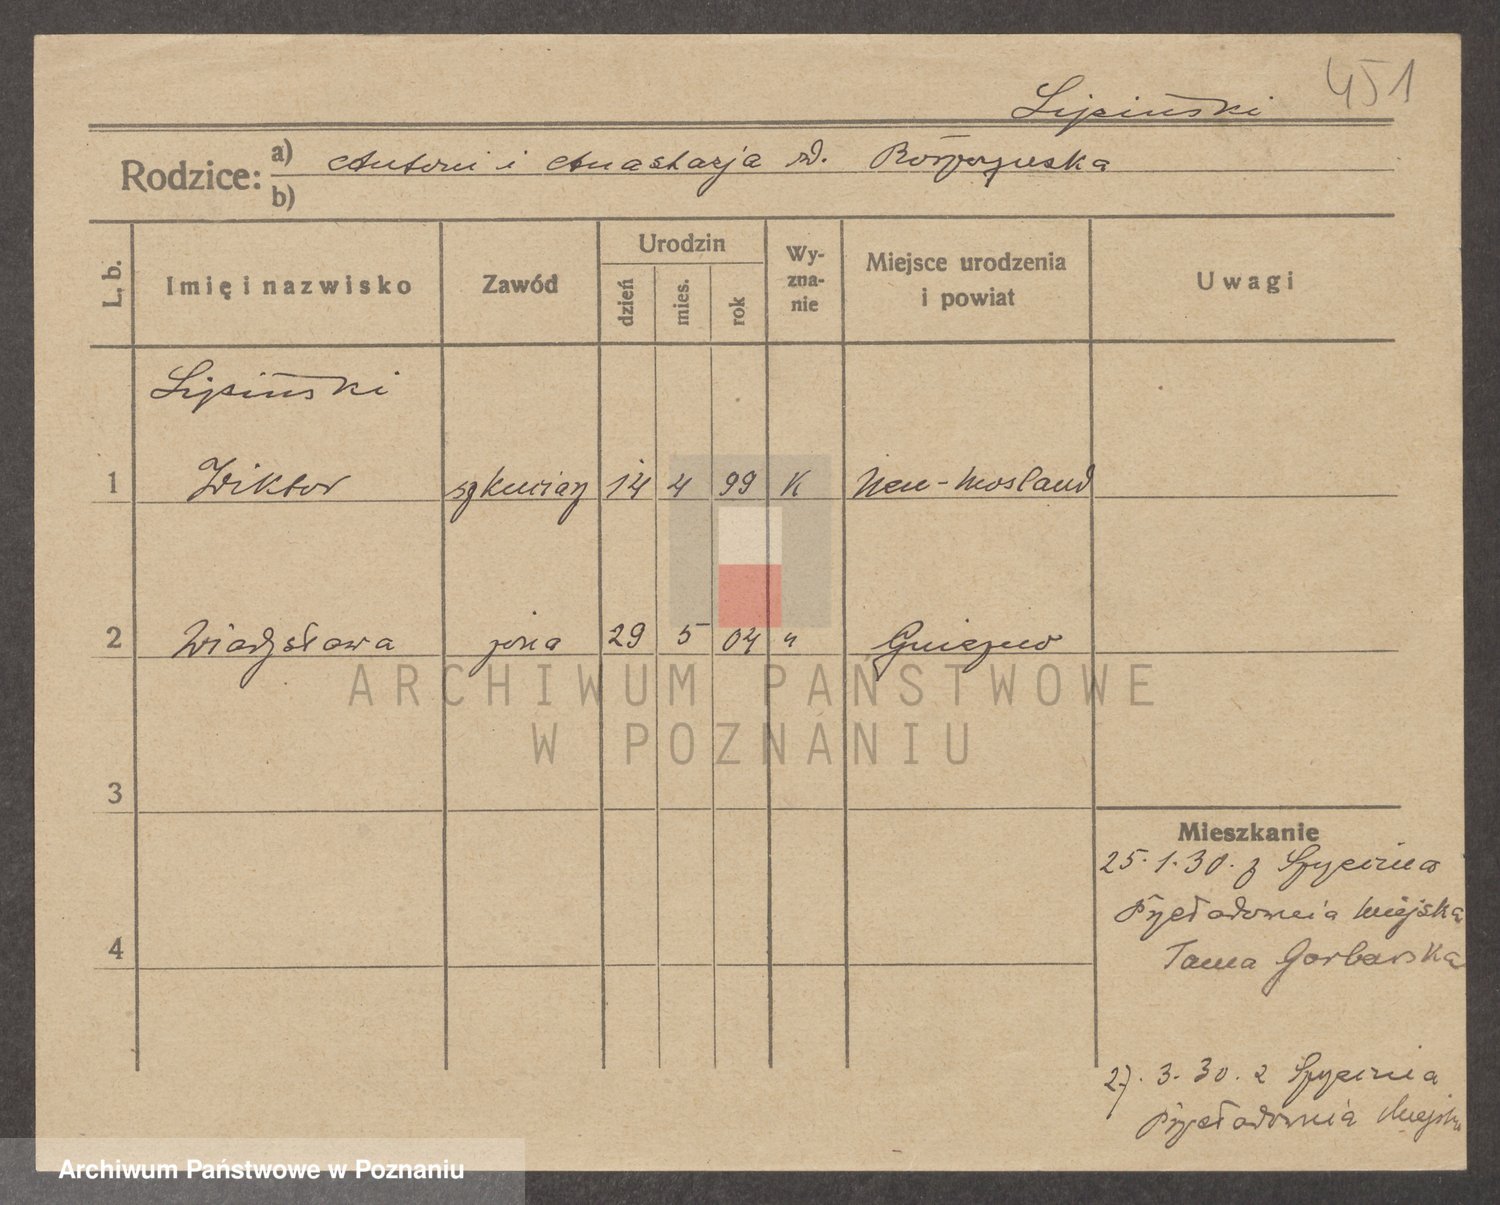 451
Lipiński
Rodzice: a) Antoni i Anastazja rd.
b)
L. b.
Imię i nazwisko
Zawód
Urodzin
dzień
mies.
rok
Wy-
zna-
nie
Miejsce urodzenia
i powiat
Uwagi
Lipiński
1 Wiktor 14 4 99 K Neu-Mosland
2 Władysława żona 29 5 04 " Gniezno
3
4
Mieszkanie
25.1.30. z
Przeładownia Miejska
Tama Garbarska
27.3.30. z
Przeładownia Miejska
ARCHIWUM PAŃSTWOWE
W POZNANIU
Archiwum Państwowe w Poznaniu